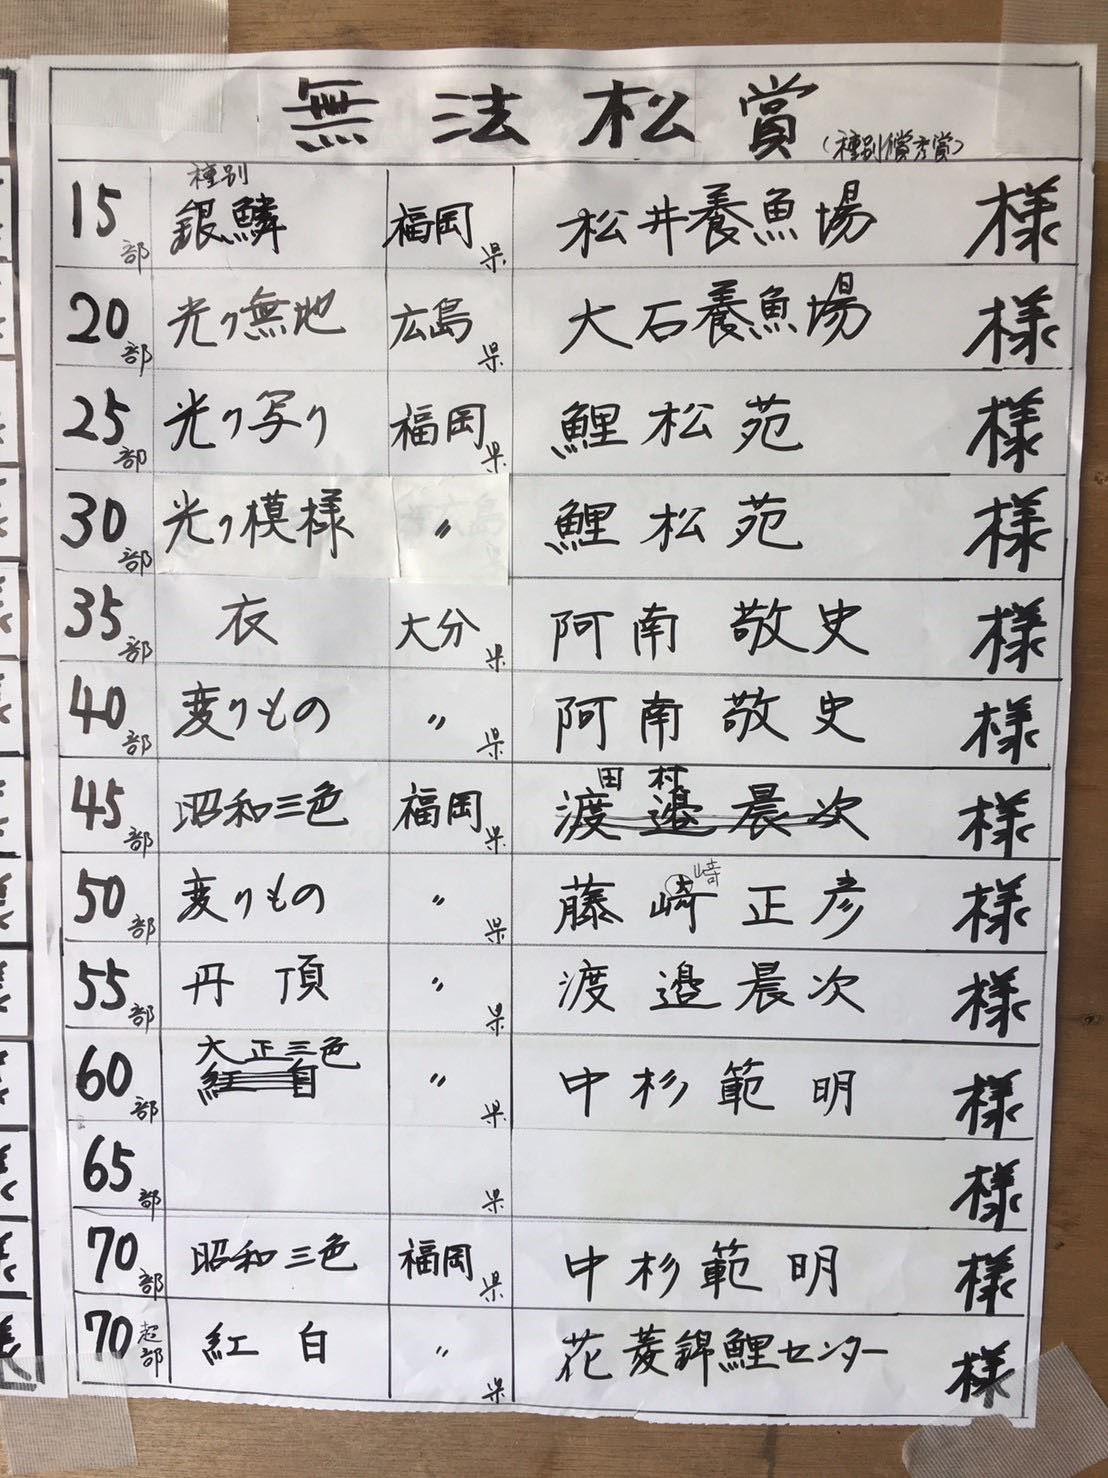 無法松賞(種別償秀賞)
種別
15部 銀鱗 福岡県 松井養魚場 様
20部 光り無地 広島県 大石養魚場 様
25部 光り写り 福岡県 鯉松苑 様
30部 光り模様 〃 鯉松苑 様
35部 衣 大分県 阿南 敬史 様
40部 変りもの 〃県 阿南 敬史 様
田村
45部 昭和三色 福岡県 渡邉晨次 様
崎
50部 変りもの 〃県 藤崎正彦 様
55部 丹頂 〃県 渡邉晨次 様
大正三色
60部 紅白 〃県 中杉範明 様
65部 県 様
70部 昭和三色 福岡県 中杉範明 様
70超部 紅白 〃県 花菱錦鯉センター 様